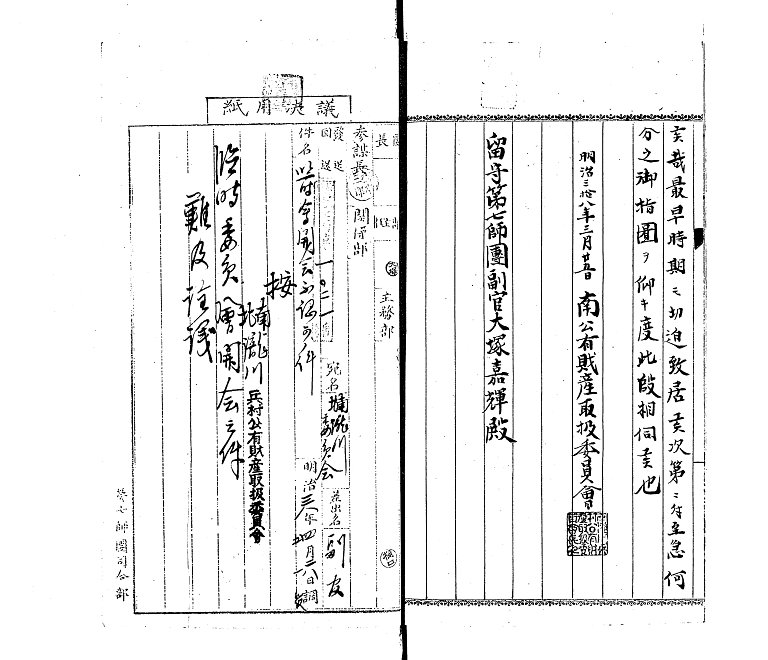 亥哉最早時期ニ切迫致居亥次第ニ付至急何
分之御指圖ヲ仰キ度此段相伺亥也
明治三拾八年三月廿五日
南公有財産取扱委員會
留守第七師團副官大塚嘉輝殿
議決用紙
主務部
参謀長
発送
回送
件名
会開会不認可ノ件
宛名
委員会
差出名
副官
明治三八年四月
按
南瀧川
北瀧川
兵村公有財産取扱委員會
臨時委員會開会之件
難及詮議
第七師團司令部